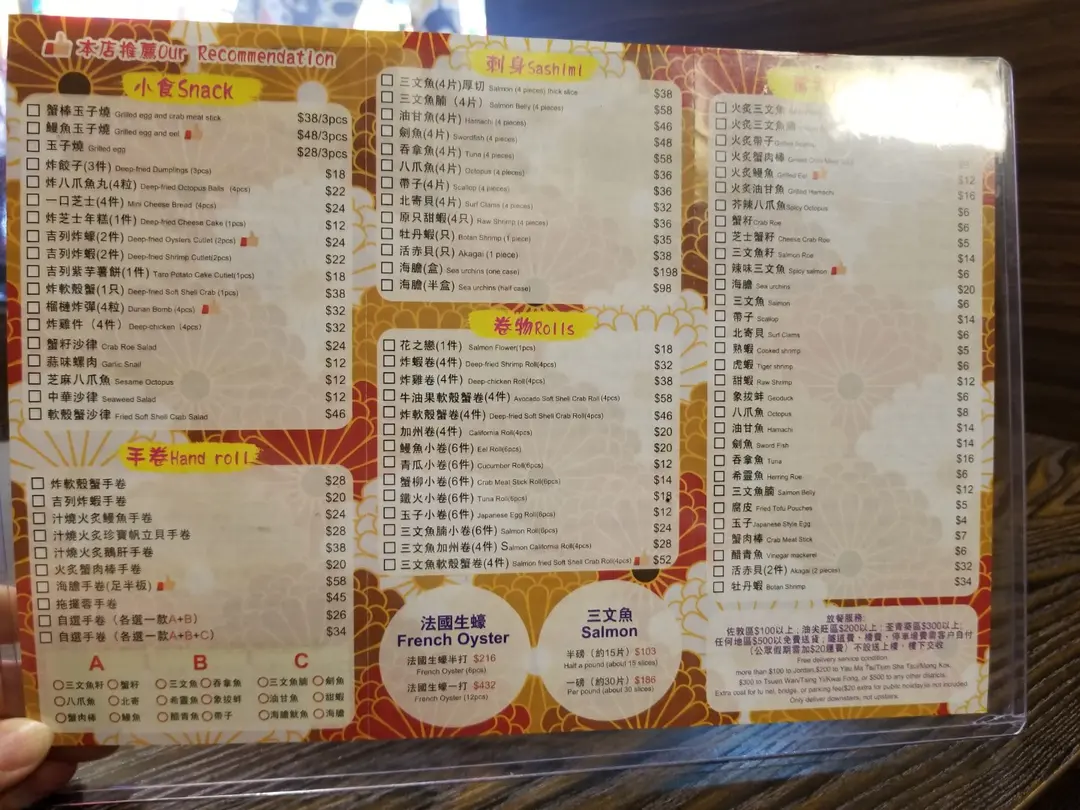 本店推薦Our Recommendation
小食Snack
蟹棒玉子燒 Grilled egg and crab meat stick $38/3pcs
鰻魚玉子燒 Grilled egg and eel $48/3pcs
玉子燒 Grilled egg $28/3pcs
炸餃子(3件) Deep-fried Dumplings (3pcs) $18
炸八爪魚丸(4粒) Deep-fried Octopus Balls (4pcs) $22
一口芝士(4件) Mini Cheese Bread (4pcs) $24
炸芝士年糕(1件) Deep-fried Cheese Cake (1pcs) $12
吉列炸蠔(2件) Deep-fried Oysters Cutlet (2pcs) $24
吉列炸蝦(2件) Deep-fried Shrimp Cutlet(2pcs) $22
吉列紫芋薯餅(1件) Taro Potato Cake Cutlet(1pcs) $18
炸軟殼蟹(1只) Deep-fried Soft Shell Crab (1pcs) $38
榴槤炸彈(4粒) Durian Bomb (4pcs) $32
炸雞件 (4件) Deep-chicken (4pcs) $32
蟹籽沙律 Crab Roe Salad $24
蒜味螺肉 Garlic Snail $12
芝麻八爪魚 Sesame Octopus $12
中華沙律 Seaweed Salad $12
軟殼蟹沙律 Fried Soft Shell Cusb Salad $46
手卷Hand roll
炸軟殼蟹手卷 $28
吉列炸蝦手卷 $20
汁燒火炙鰻魚手卷 $24
汁燒火炙珍寶帆立貝手卷 $28
汁燒火炙鵝肝手卷 $38
火炙蟹肉棒手卷 $20
海膽手卷(足半板) $58
拖羅蓉手卷 $45
自選手卷 (各選一款A+B) $26
自選手卷 (各選一款A+B+C) $34
A B C
三文魚籽 蟹籽 三文魚 吞拿魚 三文魚腩 劍魚
八爪魚 北寄 希靈魚 象拔蚌 油甘魚 甜蝦
蟹肉棒 鰻魚 醋青魚 帶子 海膽魷魚 海膽
刺身Sashimi
三文魚(4片)厚切 Salmon (4 pieces) thick slice $38
三文魚腩 (4片) Salmon Belly (4 pieces) $58
油甘魚(4片) Hamachi (4 pieces) $46
劍魚(4片) Swordfish (4 pieces) $48
吞拿魚(4片) Tuna (4 pieces) $58
八爪魚(4片) Octopus (4 pieces) $36
帶子(4片) Scallop (4 pieces) $36
北寄貝(4片) Surf Clams (4 pieces) $32
原只甜蝦(4只) Raw Shrimp (4 pieces) $36
牡丹蝦(只) Botan Shrimp (1 piece) $35
活赤貝(只) Akagai (1 piece) $38
海膽(盒) Sea urchins (one case) $198
海膽(半盒) Sea urchins (half case) $98
卷物Rolls
花之戀(1件) Salmon Flower(1pcs) $18
炸蝦卷(4件) Deep-fried Shrimp Roll(4pcs) $32
炸雞卷(4件) Deep-chicken Roll(4pcs) $38
牛油果軟殼蟹卷(4件) Avocado Soft Shell Crab Roll (4pcs) $58
炸軟殼蟹卷(4件) Deep-fried Soft Shell Crab Roll(4pcs) $46
加州卷(4件) California Roll(4pcs) $20
鰻魚小卷(6件) Eel Roll(6pcs) $20
青瓜小卷(6件) Cucumber Roll(6pcs) $12
蟹柳小卷(6件) Crab Meat Stick Roll(6pcs) $14
鐵火小卷(6件) Tuna Roll(6pcs) $18
玉子小卷(6件) Japanese Egg Roll(6pcs) $12
三文魚腩小卷(6件) Salmon Roll(6pcs) $24
三文魚加州卷(4件) Salmon California Roll(4pcs) $28
三文魚軟殼蟹卷(4件) Salmon fried Soft Shell Crab Roll(4pcs) $52
法國生蠔
French Oyster
法國生蠔半打 $216
French Oyster (6pcs)
法國生蠔一打 $432
French Oyster (12pcs)
三文魚
Salmon
半磅 (約15片) $103
Half a pound (about 15 slices)
一磅 (約30片) $186
Per pound (about 30 slices)
火炙三文魚
火炙三文魚腩
火炙帶子
火炙蟹肉棒
火炙鰻魚 Grilled Eel $12
火炙油甘魚 Grilled Hamachi $16
芥辣八爪魚Spicy Octopus $6
蟹籽Crab Roe $6
芝士蟹籽 Cheese Crab Roe $5
三文魚籽 Salmon Roe $14
辣味三文魚 Spicy salmon $6
海膽 Sea urchins $20
三文魚 Salmon $6
帶子 Scallop $14
北寄貝 Surf Clams $6
熟蝦 Cooked shrimp $5
虎蝦 Tiger shrimp $6
甜蝦 Raw Shrimp $12
象拔蚌 Geoduck $6
八爪魚 Octopus $8
油甘魚 Hamachi $14
劍魚 Sword Fish $14
吞拿魚 Tuna $16
希靈魚 Herring Roe $6
三文魚腩 Salmon Belly $12
腐皮 Fried Tofu Pouches $5
玉子 Japanese Style Egg $4
蟹肉棒 Crab Meat Stick $7
醋青魚 Vinegar mackerel $6
活赤貝(2件) Akagai (2 pieces) $32
牡丹蝦 Botan Shrimp $34
放餐服務:
佐敦區$100以上；油尖旺區$200以上；荃青葵區$300以上；
任何地區$500以免費送貨；隧道費、橋費、停車場費需客戶自付
(公眾假期需加$20運費) 不設送上樓，樓下交收
Free delivery service condition
more than $100 to Jordan,$200 to Yau Ma Tai/Tsim Sha Tsui/Mong Kok,
$300 to Tsuen Wan/Tsing Yi/Kwai Fong, or $500 to any other districts.
Extra cost for tunnel, bridge, or parking fee($20 extra for public holiday)is not included
Only deliver downstairs, not upstairs.